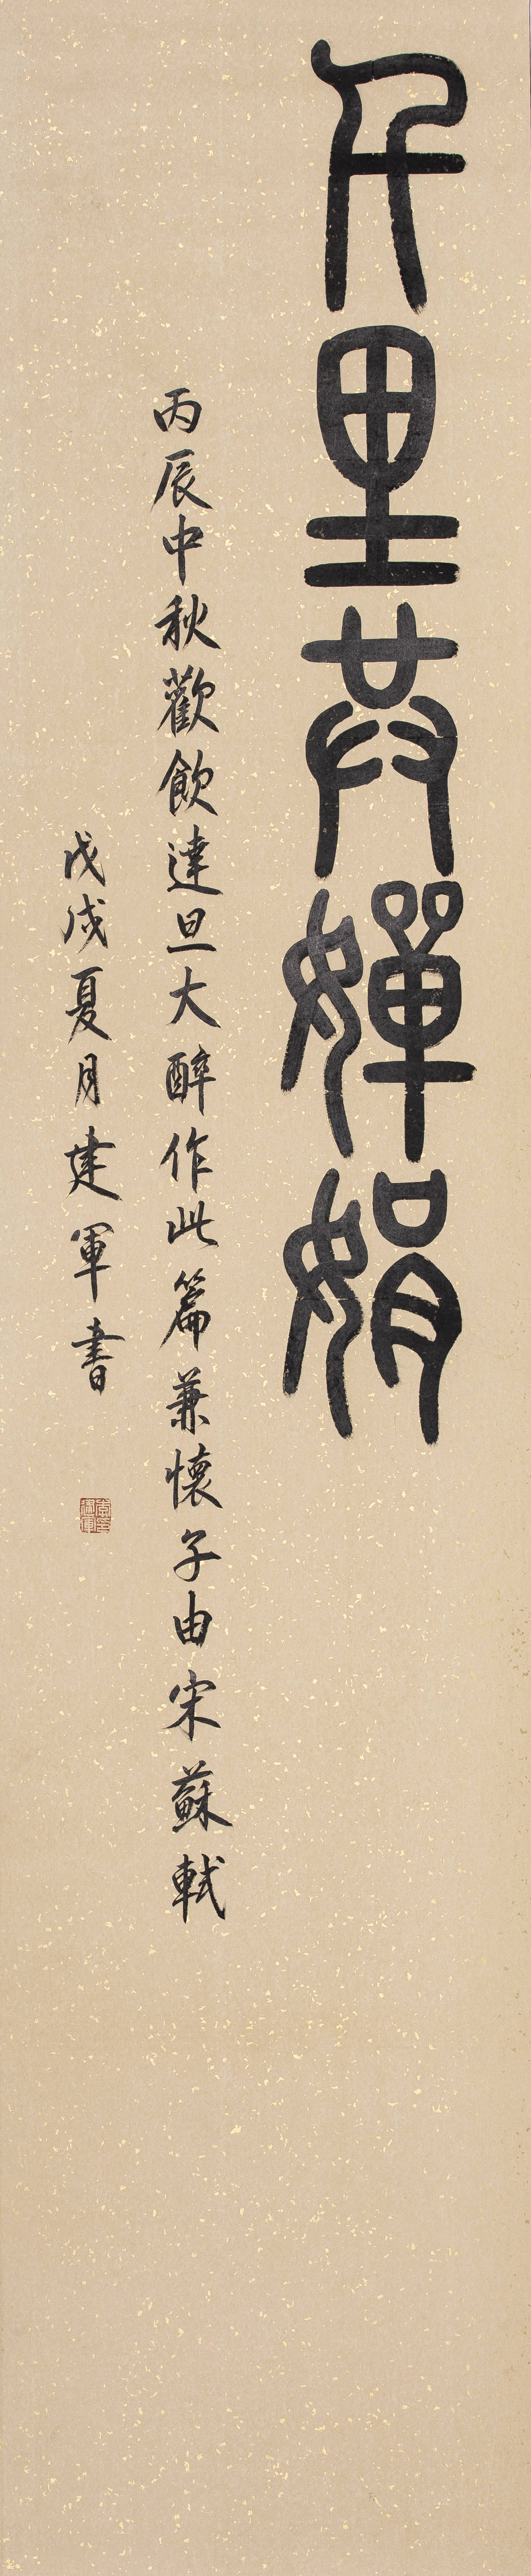 千里共嬋娟
丙辰中秋歡飲達旦大醉作此篇兼懷子由宋蘇軾
戊戌夏月建軍書